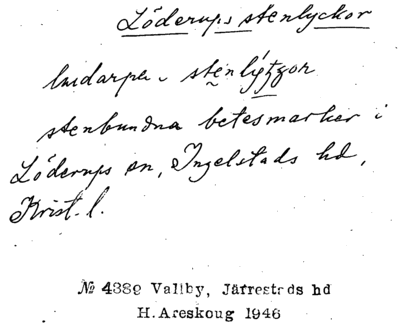 Löderups stenlyckor
stenlýtzor
stenbundna betesmarker i
Löderups sn, Ingelstads hd,
Krist. l.
№ 4389 Vallby, Järrestads hd
H. Areskoug 1946